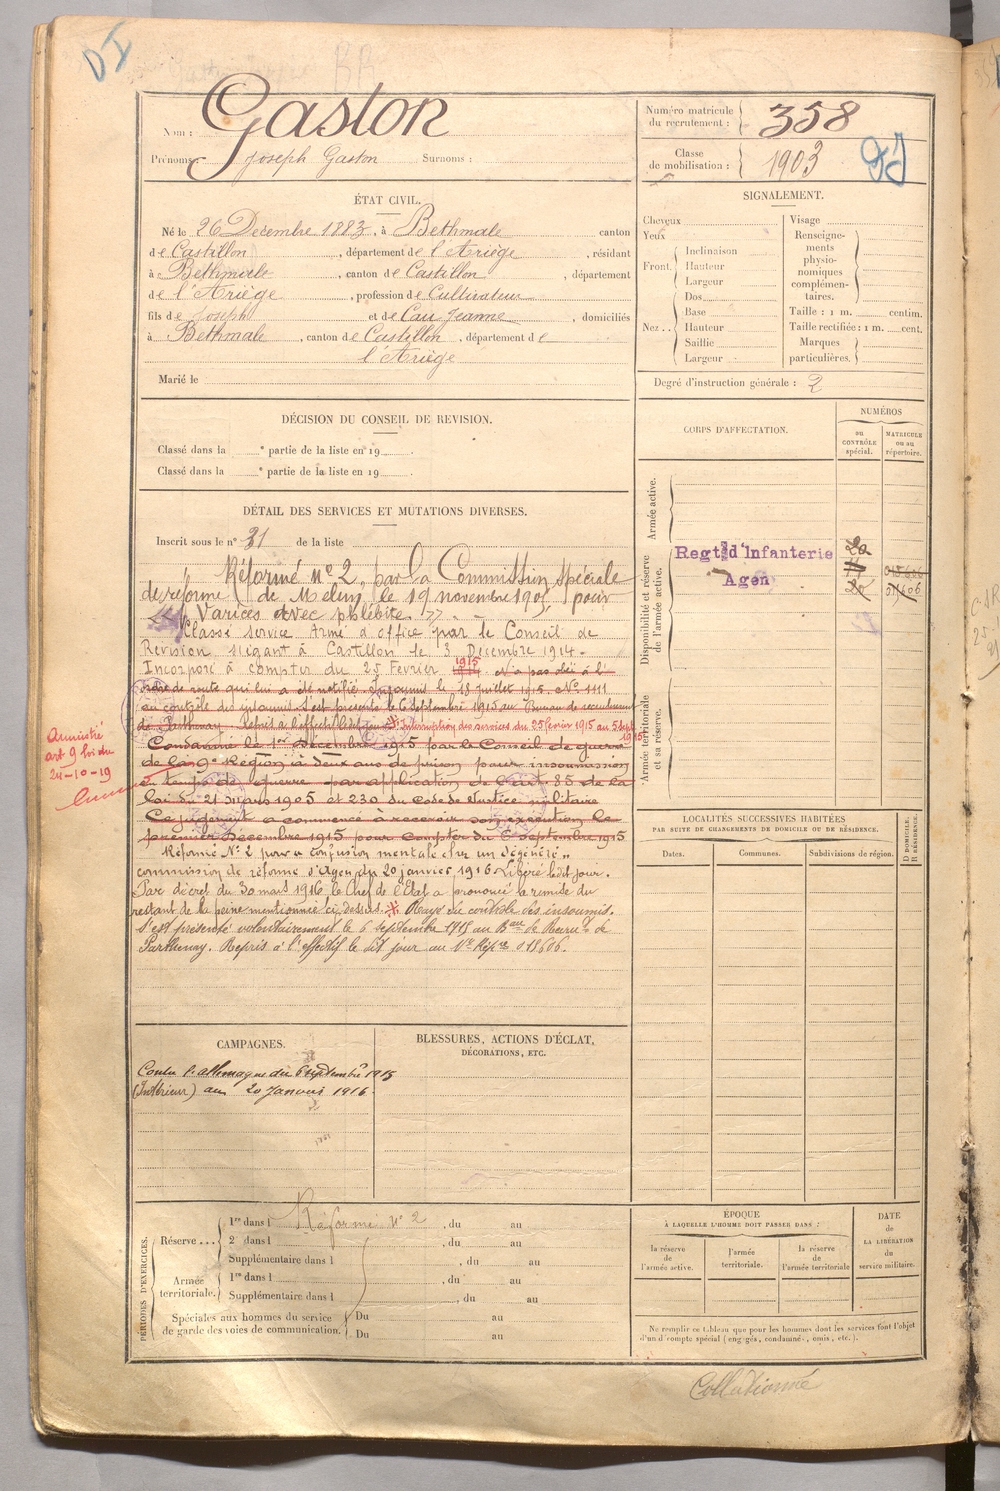 DI
Nom : Gaston
Prénoms : Joseph Gaston Surnoms :
Numéro matricule du recrutement : 358
Classe de mobilisation : 1903
ÉTAT CIVIL.
Né le 26 Decembre 1883, à Bethmale canton
de Castillon, département de l'Ariège, résidant
à Bethmale, canton de Castillon, département
de l'Ariège, profession de Cultivateur
fils de Joseph et de Cau Jeanne, domiciliés
à Bethmale, canton de Castillon, département de
l'Ariège
Marié le
SIGNALEMENT.
Cheveux
Yeux
Front. Inclinaison
Hauteur
Largeur
Nez.. Dos
Base
Hauteur
Saillie
Largeur
Visage
Renseigne-
ments
physio-
nomiques
complémen-
taires.
Taille : 1 m. centim.
Taille rectifiée : 1 m. cent.
Marques
particulières.
Degré d'instruction générale : 2
DÉCISION DU CONSEIL DE REVISION.
Classé dans la e partie de la liste en 19
Classé dans la e partie de la liste en 19
DÉTAIL DES SERVICES ET MUTATIONS DIVERSES.
Inscrit sous le n° 31 de la liste
Réformé n° 2, par la Commission Spéciale
de réforme de Melun le 19 novembre 1905 pour
"Varices avec phlébite."
Classé service Armé d'office par le Conseil de
Revision siégant à Castillon le 3 Décembre 1914.-
Incorporé à compter du 25 Fevrier 1915 N'a pas obéi à l'
ordre de route qui lui a été notifié. Insoumis le 18 juillet 1915. N° 1111
au contrôle des insoumis. S'est présenté le 6 septembre 1915 au Bureau de recrutement
de Parthenay. Interruption des services du 25 fevrier 1915 au 5 Sept 1915
Condamné le 1er Décembre 1915 par le Conseil de guerre
de la 9e Région à deux ans de prison pour insoumission
en temps de guerre par application de l'art. 85 de la
loi du 21 Mars 1905 et 230 du code de Justice militaire
Ce jugement a commencé à recevoir son exécution le
premier Décembre 1915 pour compter du 6 septembre 1915
Réformé N° 2 pour "confusion mentale chez un dégénéré"
commission de réforme d'Agen du 20 janvier 1916. Libéré ledit jour.
Par décret du 30 mars 1916 le Chef de l'Etat a prononcé la remise du
restant de la peine mentionnée ci-dessus. * Rayé du contrôle des insoumis.
S'est présenté volontairement le 6 septembre 1915 au Bau de Recrut. de
Parthenay. Repris à l'effectif le dit jour au Ne Répre 018606.
Amnistié
art. 9 loi du
24-10-19
CORPS D'AFFECTATION.
NUMÉROS
au CONTRÔLE spécial.
MATRICULE ou au répertoire.
Armée active.
Disponibilité et réserve de l'armée active.
Regt d'Infanterie
Agen
Armée territoriale et sa réserve.
LOCALITÉS SUCCESSIVES HABITÉES
PAR SUITE DE CHANGEMENTS DE DOMICILE OU DE RÉSIDENCE.
Dates.
Communes.
Subdivisions de région.
D DOMICILE.
R RÉSIDENCE.
CAMPAGNES.
Contre l'allemagne du 6 septembre 1915
(Intérieur) au 20 Janvier 1916.
BLESSURES, ACTIONS D'ÉCLAT,
DÉCORATIONS, ETC.
PÉRIODES D'EXERCICES.
Réserve ... 1re dans l Réformé n° 2, du au
2e dans l, du au
Supplémentaire dans l, du au
Armée territoriale. 1re dans l, du au
Supplémentaire dans l, du au
Spéciales aux hommes du service
de garde des voies de communication. Du au
Du au
ÉPOQUE
À LAQUELLE L'HOMME DOIT PASSER DANS :
la réserve de l'armée active.
l'armée territoriale.
la réserve de l'armée territoriale
DATE de LA LIBÉRATION du service militaire.
Ne remplir ce tableau que pour les hommes dont les services font l'objet
d'un décompte spécial (engagés, condamnés, omis, etc.).
Collationné